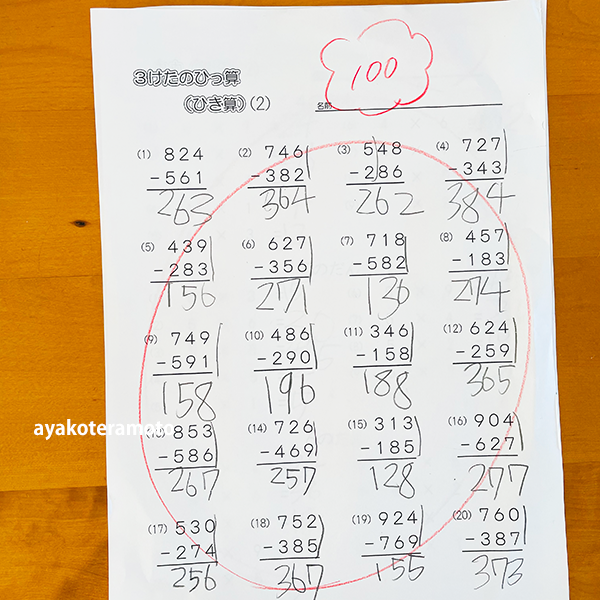 100
3けたのひっ算
(ひき算)(2)
名前
(1) 824 (2) 746 (3) 548 (4) 727
-561 -382 -286 -343
263 364 262 384
(5) 439 (6) 627 (7) 718 (8) 457
-283 -356 -582 -183
156 271 136 274
(9) 749 (10) 486 (11) 346 (12) 624
-591 -290 -158 -259
158 196 188 365
ayakoteramoto
(13) 853 (14) 726 (15) 313 (16) 904
-586 -469 -185 -627
267 257 128 277
(17) 530 (18) 752 (19) 924 (20) 760
-274 -385 -769 -387
256 367 155 373